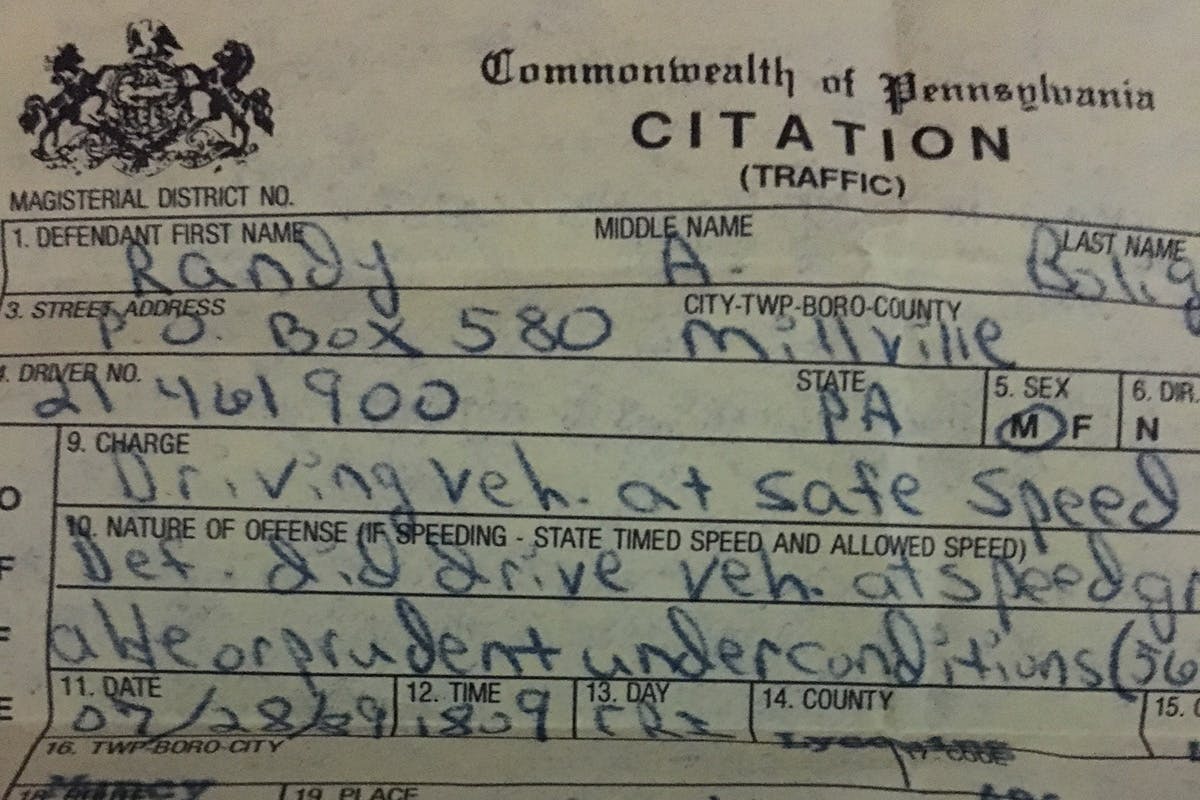 Commonwealth of Pennsylvania
CITATION
(TRAFFIC)
MAGISTERIAL DISTRICT NO.
1. DEFENDANT FIRST NAME MIDDLE NAME LAST NAME
Randy A. Bolig
3. STREET ADDRESS CITY-TWP-BORO-COUNTY
P.O. Box 580 Millville
4. DRIVER NO. STATE 5. SEX 6. DIR.
21 461 900 PA M F N
9. CHARGE
Driving veh. at safe speed
10. NATURE OF OFFENSE (IF SPEEDING - STATE TIMED SPEED AND ALLOWED SPEED)
Def. did drive veh. at speed gr
able or prudent under conditions (56
11. DATE 12. TIME 13. DAY 14. COUNTY 15.
07/28/89 1809 FRI
16. TWP-BORO-CITY 17. CODE
18. 19. PLACE